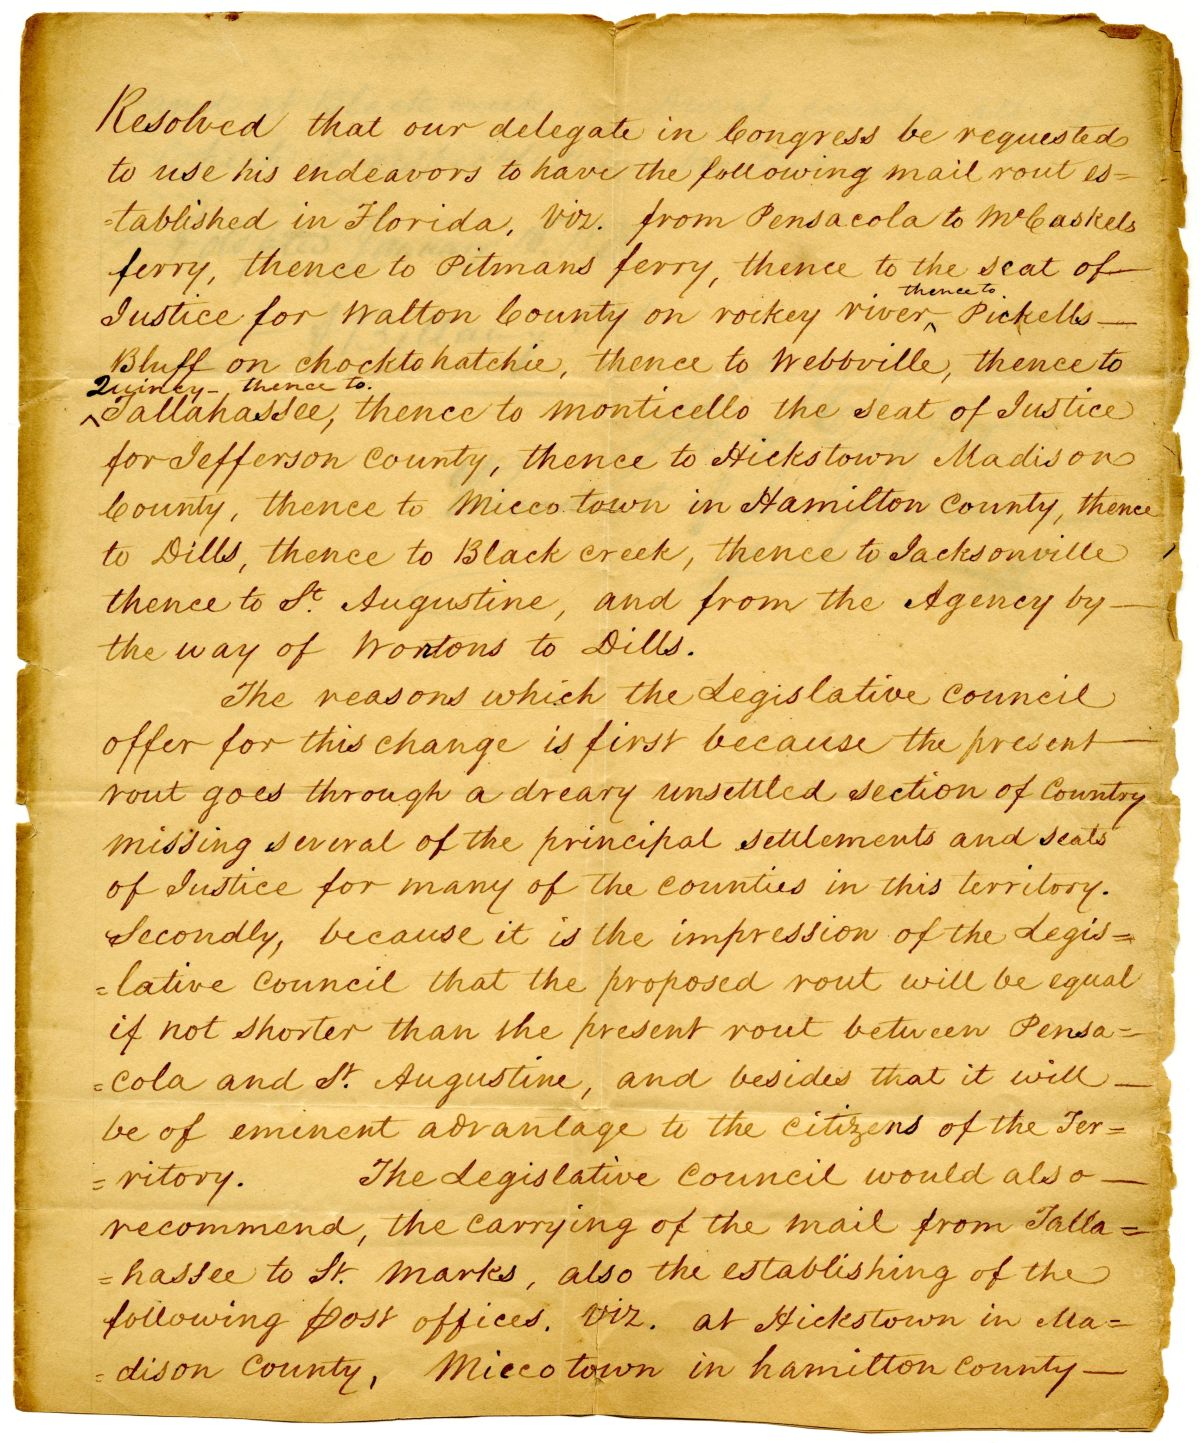 Resolved that our delegate in Congress be requested
to use his endeavors to have the following mail rout es=
=tablished in Florida, viz. from Pensacola to McCaskels
ferry, thence to Pitmans ferry, thence to the seat of—
thence to
Justice for Walton County on rockey river ^ Pickells—
Bluff on chocktohatchie, thence to Webbville, thence to
Quincy— thence to.
^Tallahassee, thence to monticello the seat of Justice
for Jefferson County, thence to Hickstown Madison
County, thence to Micco town in Hamilton County, thence
to Dills, thence to Black creek, thence to Jacksonville,
thence to St. Augustine, and from the Agency by—
the way of Wontons to Dills.
The reasons which the Legislative council
offer for this change is first because the present—
rout goes through a dreary unsettled section of Country
missing several of the principal settlements and seats
of Justice for many of the counties in this territory.
Secondly, because it is the impression of the Legis=
=lative Council that the proposed rout will be equal
if not shorter than the present rout between Pensa=
=cola and St. Augustine, and besides that it will—
be of eminent advantage to the citizens of the Ter=
=ritory. The Legislative Council would also—
recommend, the carrying of the mail from Talla=
=hassee to St. Marks, also the establishing of the
following post offices. viz. at Hickstown in Ma=
=dison County, Micco town in hamilton County—